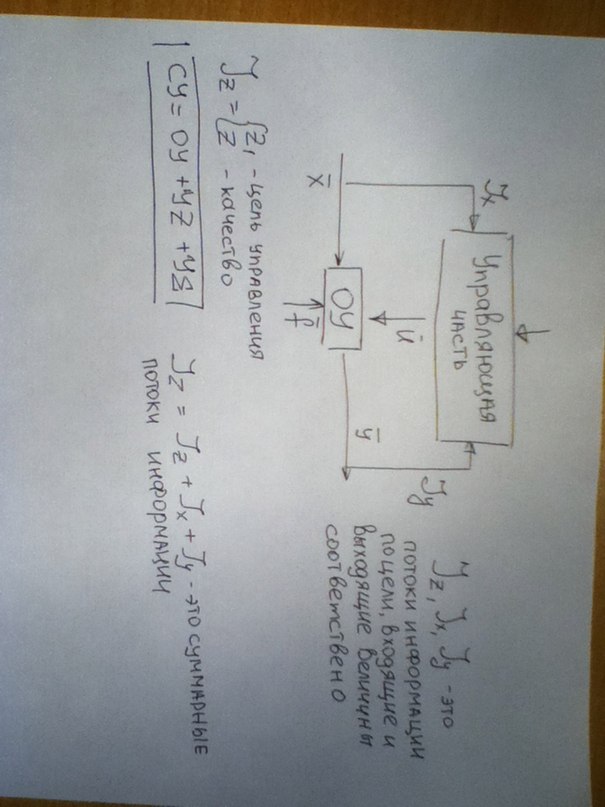 Jx
Управляющая
часть
Jy
x̄
ū
ОУ
f̄
ȳ
Jz, Jx, Jy - это
потоки информации
по цели, входящие и
выходящие величины
соответствено
Jz = { z, - цель управления
z - качество
СУ = ОУ + УZ + УΣ
Jz = Jz + Jx + Jy - это суммарные
потоки информации